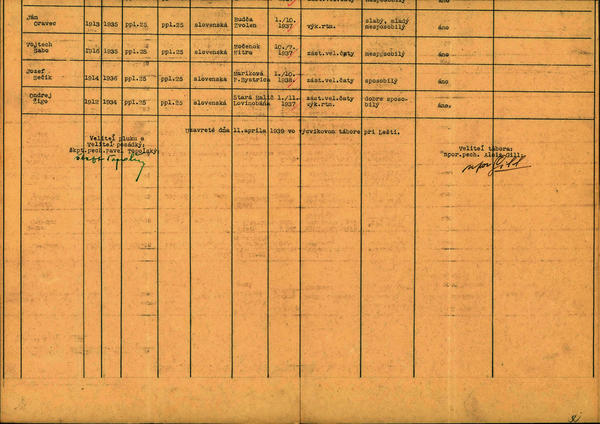 Ján Oravec 1913 1935 ppl.25 ppl.25 slovenská Budča Zvolen 1./10. 1937 výk.rtm. slabý, mladý nesposobilý áno
Vojtech Sabo 1916 1935 ppl.25 ppl.25 slovenská Močenok Nitra 10./7. 1937 zást.vel.čaty nesposobilý áno
Jozef Sečík 1914 1936 ppl.25 ppl.25 slovenská Maríková P.Bystrica 1./10. 1938 zást.vel.čaty sposobilý áno
Ondrej Žigo 1912 1934 ppl.25 ppl.25 slovenská Stará Halič Lovinobáňa 1./11. 1937 zást.vel.čaty výk.rtm. dobre sposobilý áno.
Uzavreté dňa 11.apríla 1939 vo výcvikovom tábore pri Lešti.
Veliteľ pluku a
veliteľ posádky:
Škpt.pech.Pavel Topolský.
Veliteľ tábora:
npor.pech. Alojz Gill: